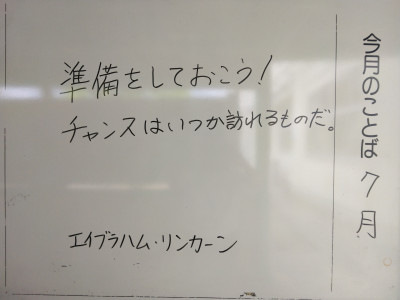 今月のことば 7月
準備をしておこう!
チャンスはいつか訪れるものだ。
エイブラハム・リンカーン